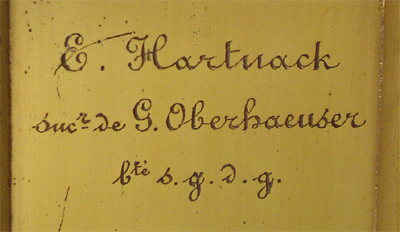 E. Hartnack
sucr de G. Oberhaeuser
bté s. g. d. g.